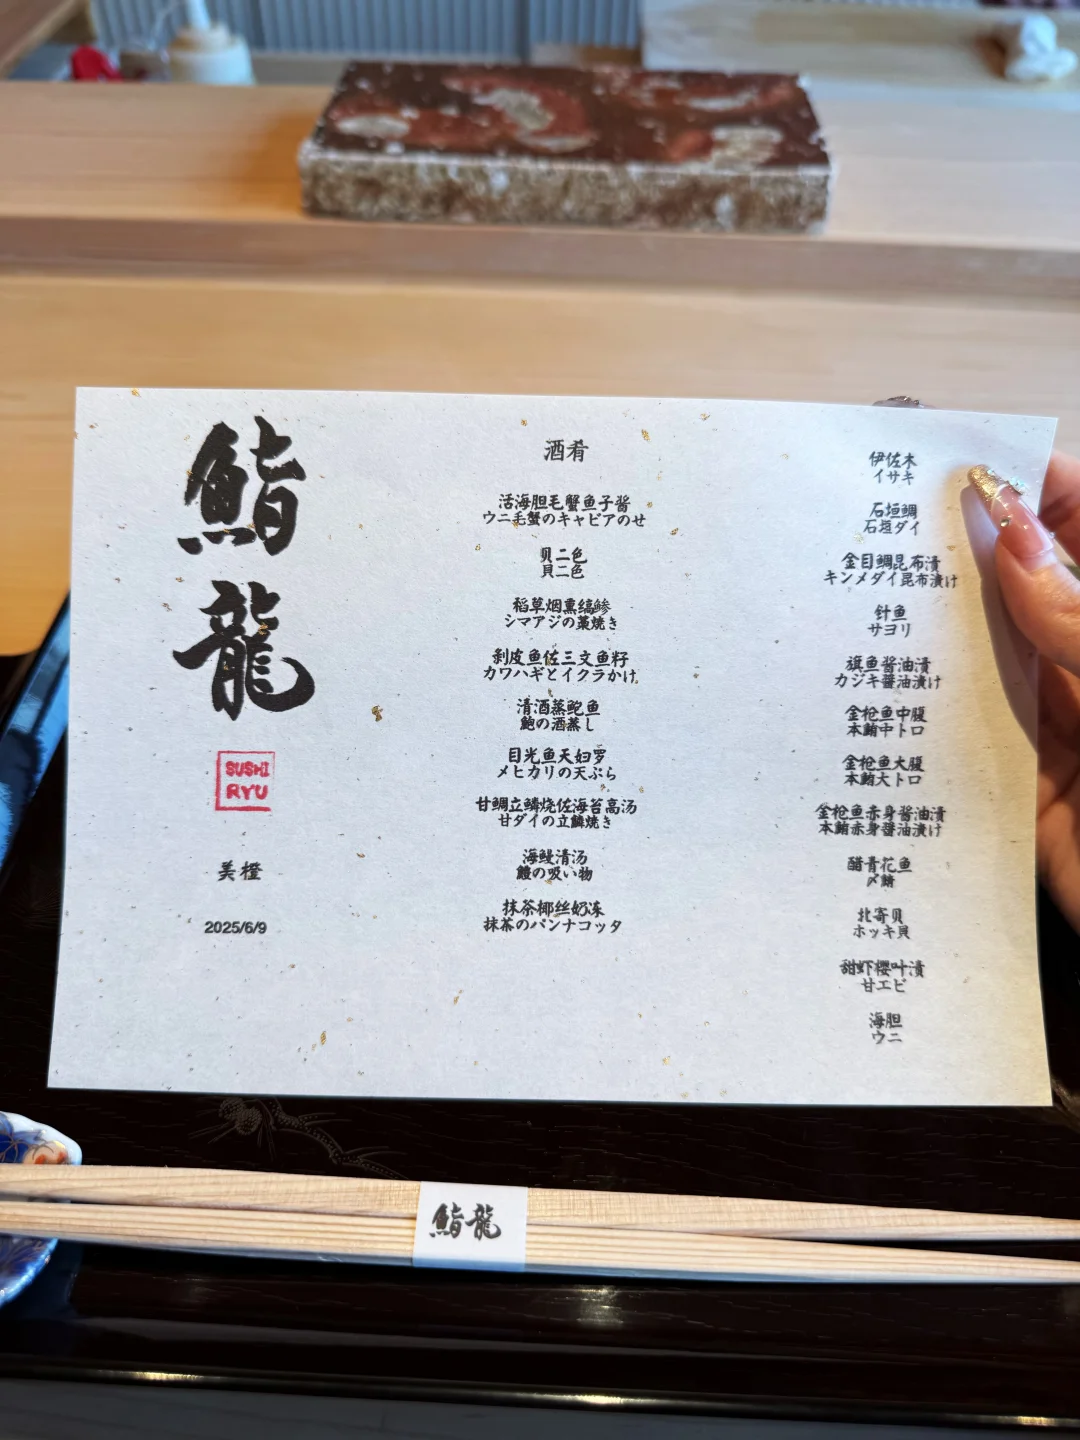 鮨
龍
SUSHI
RYU
美橙
2025/6/9
酒肴
活海胆毛蟹鱼子酱
ウニ毛蟹のキャビアのせ
贝二色
貝二色
稻草烟熏缟鲹
シマアジの藁焼き
剥皮鱼佐三文鱼籽
カワハギとイクラかけ
清酒蒸鲍鱼
鮑の酒蒸し
目光鱼天妇罗
メヒカリの天ぷら
甘鲷立鳞烧佐海苔高汤
甘ダイの立鱗焼き
海鳗清汤
鱧の吸い物
抹茶椰丝奶冻
抹茶のパンナコッタ
伊佐木
イサキ
石垣鲷
石垣ダイ
金目鲷昆布渍
キンメダイ昆布漬け
针鱼
サヨリ
旗鱼酱油渍
カジキ醤油漬け
金枪鱼中腹
本鮪中トロ
金枪鱼大腹
本鮪大トロ
金枪鱼赤身酱油渍
本鮪赤身醤油漬け
醋青花鱼
〆鯖
北寄贝
ホッキ貝
甜虾樱叶渍
甘エビ
海胆
ウニ
鮨龍